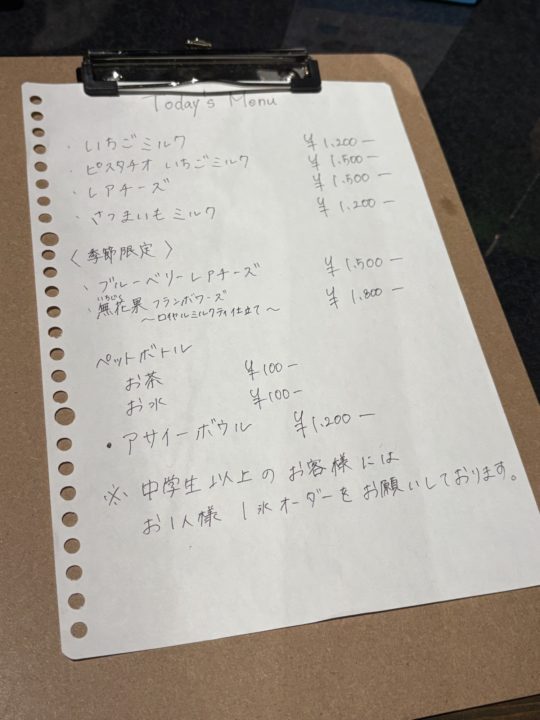 Today's Menu
・いちごミルク ¥1.200ー
・ピスタチオ いちごミルク ¥1.500ー
・レアチーズ ¥1.500ー
・さつまいもミルク ¥1.200ー
〈季節限定〉
・ブルーベリーレアチーズ ¥1.500ー
いちじく
・無花果フランボワーズ ¥1.800ー
～ロイヤルミルクティ仕立て～
ペットボトル
お茶 ¥100ー
お水 ¥100ー
・アサイーボウル ¥1.200ー
※ 中学生以上のお客様には
お1人様 1氷オーダーをお願いしております。